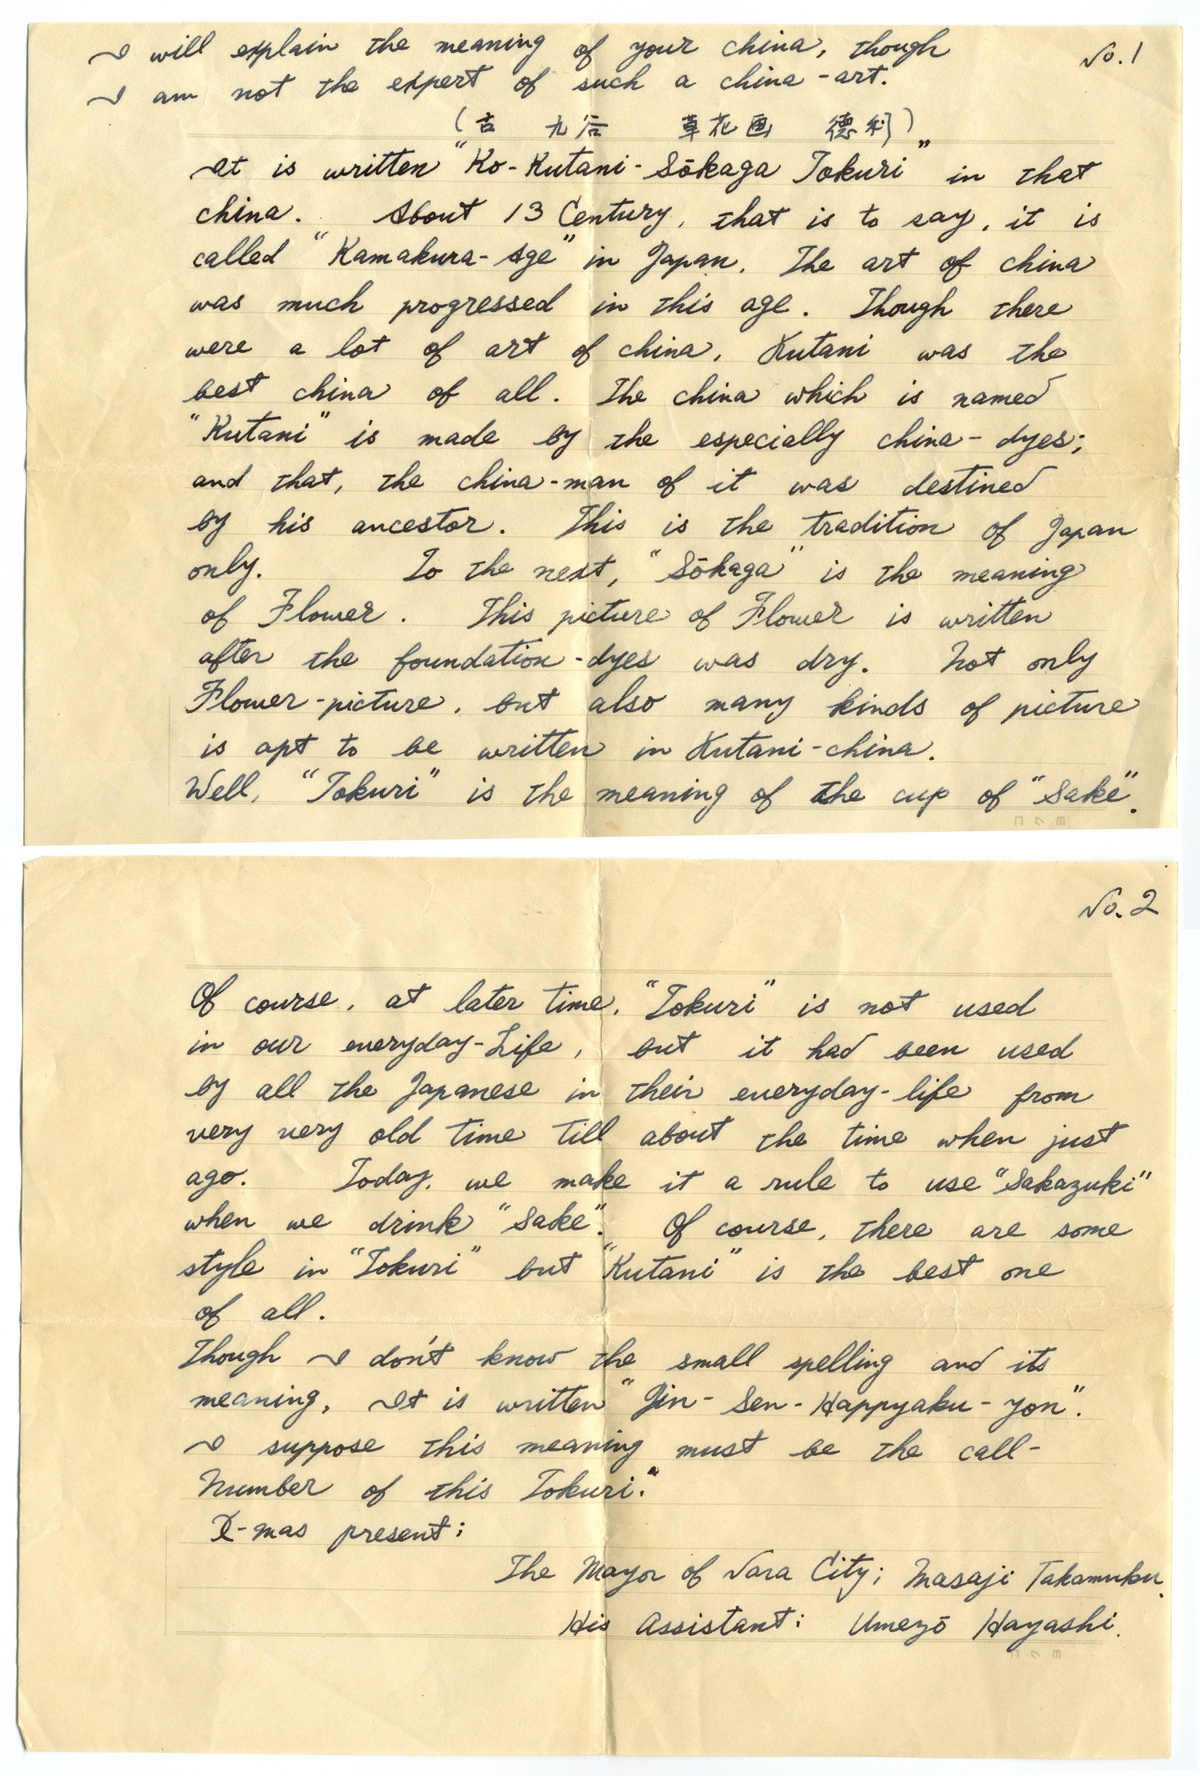 No. 1
I will explain the meaning of your china, though
I am not the expert of such a china-art.
(古 九谷 草花画 德利)
It is written "Ko-Kutani-Sōkaga Tokuri" in that
china. About 13 Century, that is to say, it is
called "Kamakura-Age" in Japan. The art of china
was much progressed in this age. Though there
were a lot of art of china, Kutani was the
best china of all. The china which is named
"Kutani" is made by the especially china-dyes;
and that, the china-man of it was destined
by his ancestor. This is the tradition of Japan
only. To the next, "Sōkaga" is the meaning
of Flower. This picture of Flower is written
after the foundation-dyes was dry. Not only
Flower-picture, but also many kinds of picture
is apt to be written in Kutani-china.
Well, "Tokuri" is the meaning of the cup of "Sake".
No. 2
Of course, at later time, "Tokuri" is not used
in our everyday-Life, but it had been used
by all the Japanese in their everyday-life from
very very old time till about the time when just
ago. Today, we make it a rule to use "Sakazuki"
when we drink "Sake". Of course, there are some
style in "Tokuri" but "Kutani" is the best one
of all.
Though I don't know the small spelling and its
meaning, It is written "Jin-Sen-Happyaku-yon".
I suppose this meaning must be the call-
Number of this Tokuri."
X-mas present:
The Mayor of Nara City; Masaji Takamuku.
His Assistant: Umezō Hayashi.